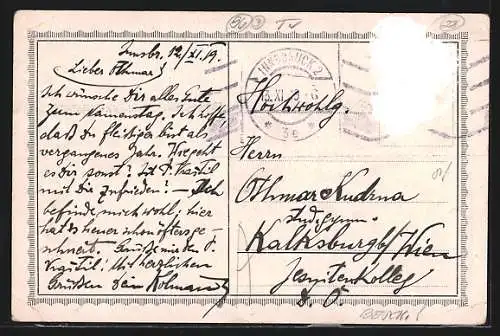 Innsbr. 12/XI. 19.
Lieber Othmar!
Ich wünsche Dir alles Gute
zum Namenstag. Ich hoffe
daß Du fleißiger bist als
vergangenes Jahr. Wie geht
es dir sonst? Ist P.
mit dir zufrieden? – Ich
befinde mich wohl; hier
hat es heuer schon öfters ge-
schneit. Grüße mir P.
Mit herzlichen
Grüßen Dein Kolmann
INNSBRUCK 2
13. XI. 19
* 3e *
Hochwohlg.
Herrn
Othmar Kudrna
stud. gymn.
Kalksburg b/Wien
Jesuitenkolleg
N. Ö.